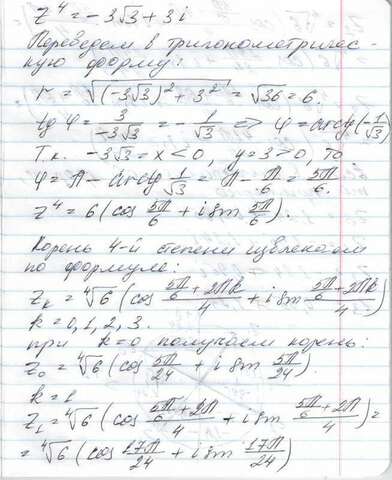 z⁴ = -3√3 + 3i
Переведем в тригонометричес-
кую форму:
r = √((-3√3)² + 3²) = √36 = 6.
tg φ = 3/(-3√3) = -1/√3 => φ = arctg(-1/√3)
Т.к. -3√3 = x < 0, y = 3 > 0, то
φ = π - arctg 1/√3 = π - π/6 = 5π/6.
z⁴ = 6(cos 5π/6 + i sin 5π/6).
Корень 4-й степени извлекаем
по формуле:
z_k = ⁴√6 (cos (5π/6 + 2πk)/4 + i sin (5π/6 + 2πk)/4)
k = 0, 1, 2, 3.
при k=0 получаем корень:
z₀ = ⁴√6 (cos 5π/24 + i sin 5π/24).
k = 1
z₁ = ⁴√6 (cos (5π/6 + 2π)/4 + i sin (5π/6 + 2π)/4) =
= ⁴√6 (cos 17π/24 + i sin 17π/24)